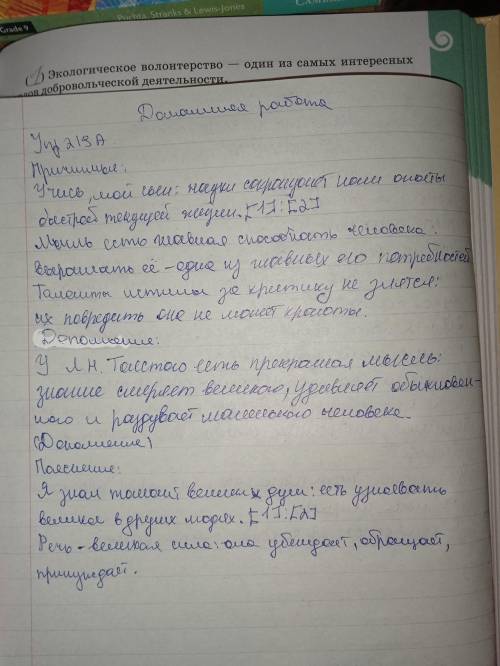 Grade 9
Pochta, Stranks & Lewis-Jones
(А) Экологическое волонтерство — один из самых интересных
добровольческой деятельности.
Домашняя работа
Упр 219 А
Причинные:
Учись, мой сын: науки сокращают нам опыты
быстроб текущей жизни. [1]:[2]
Мысль есть главная способность человека:
выражать её - одна из главных его потребностей
Таланты истины за критику не злятся:
их повредить она не может красоты.
Дополнение:
У Л.Н. Толстого есть прекрасная мысль:
знание смиряет великого, удивляет обыкновен-
ного и раздувает маленького человека.
(Дополнение)
Пояснение:
Я знал талант великих душ: есть узнавать
великое в других людях. [1]:[2]
Речь - великая сила: она убеждает, обращает,
принуждает.